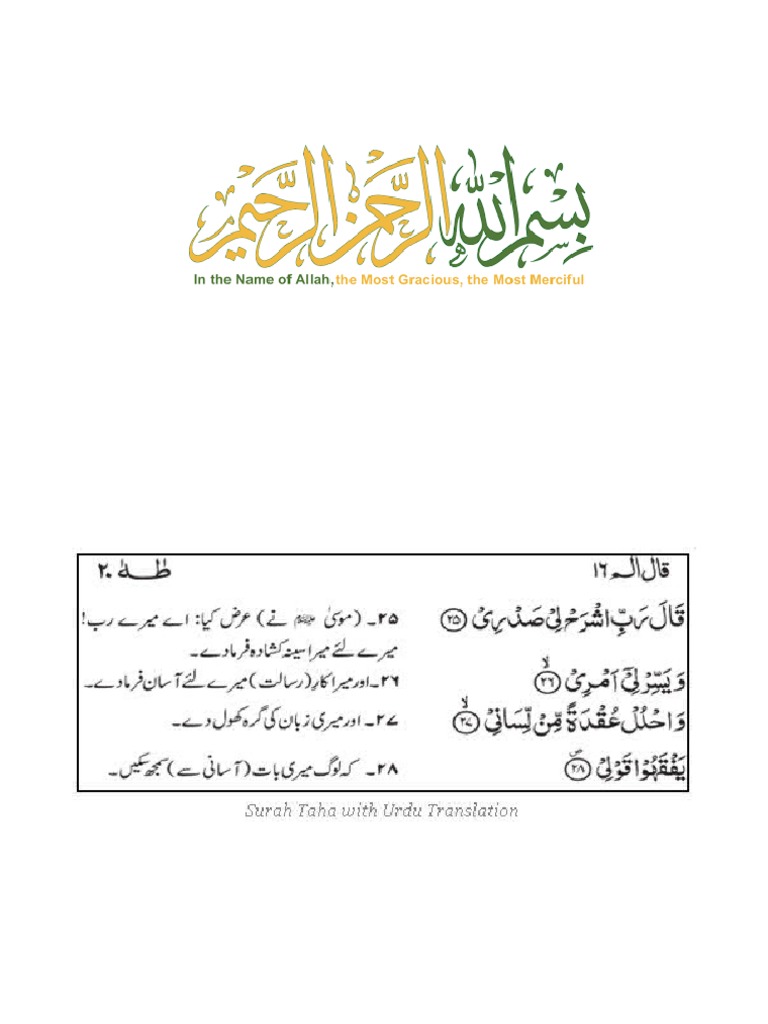 بِسْمِ اللهِ الرَّحْمٰنِ الرَّحِيْمِ
In the Name of Allah, the Most Gracious, the Most Merciful
قال الـم ١٦
طٰـهٰ ٢٠
قَالَ رَبِّ اشْرَحْ لِیْ صَدْرِیْ ﴿۲۵﴾
۲۵۔ (موسیٰ ﷺ نے) عرض کیا: اے میرے رب!
میرے لئے میرا سینہ کشادہ فرما دے۔
وَ یَسِّرْ لِیْۤ اَمْرِیْ ﴿ۙ۲۶﴾
۲۶۔ اور میرا کارِ (رسالت) میرے لئے آسان فرما دے۔
وَ احْلُلْ عُقْدَةً مِّنْ لِّسَانِیْ ﴿ۙ۲۷﴾
۲۷۔ اور میری زبان کی گرہ کھول دے۔
یَفْقَهُوْا قَوْلِیْ ﴿۪۲۸﴾
۲۸۔ کہ لوگ میری بات (آسانی سے) سمجھ سکیں۔
Surah Taha with Urdu Translation